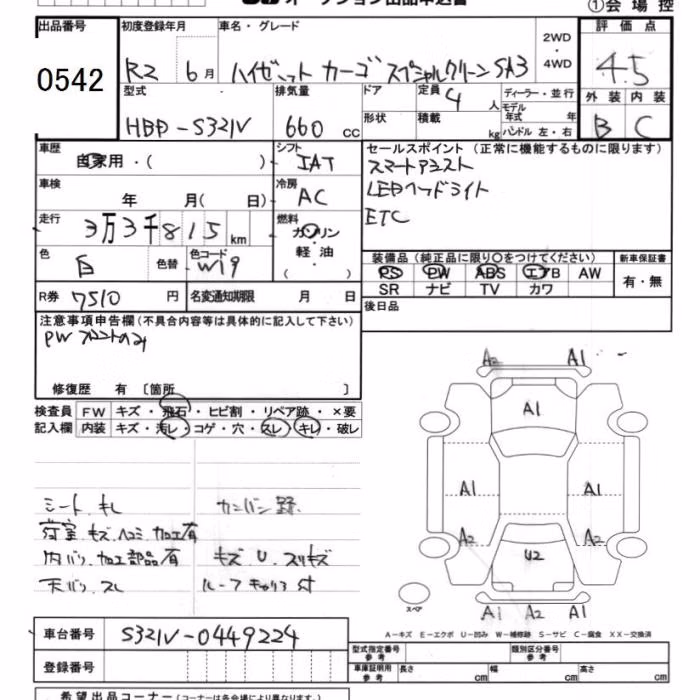 オークション出品申込書
①会場控
出品番号
0542
初度登録年月
R2 6月
車名・グレード
ハイゼット カーゴ スペシャルクリーン SA3
2WD
・
4WD
評価点
4.5
外装 内装
B C
型式
HBD-S321V
排気量
660 cc
ドア
定員
4人
形状
積載
kg
ディーラー・並行
モデル
年式 年
ハンドル 左・右
車歴
自家用・( )
シフト
IAT
車検
年 月( 日)
冷房
AC
走行
3万3千815km
燃料
ガソリン
軽油
( )
色
白
色替
色コード
W19
R券
7510円
名変通知期限 月 日
セールスポイント(正常に機能するものに限ります)
スマートアシスト
LEDヘッドライト
ETC
装備品(純正品に限り〇をつけてください)
新車保証書
PS PW ABS エアB AW
SR ナビ TV カワ
有・無
後日品
注意事項申告欄(不具合内容等は具体的に記入して下さい)
PW フロントのみ
修復歴 有〔箇所 〕
検査員 FW キズ・飛石・ヒビ割・リペア跡・×要
記入欄 内装 キズ・汚レ・コゲ・穴・スレ・キレ・破レ
シート キレ
荷室 キズ ヘコミ 加工有
内バリ 加工部品有
天バリ スレ
カンバン跡
キズ U スリキズ
ルーフキャリア付
A2 A1
A1
A1 A1
A2 A2
U2
スペア
A1 A2 A1
A-キズ E-エクボ U-凹み W-補修跡 S-サビ C-腐食 XX-交換済
車台番号
S321V-0449224
登録番号
型式指定番号
参考
類別区分番号
参考
車庫証明用
参考
長さ cm 幅 cm 高さ cm
希望出品コーナー(コーナーは各会場により異なります。)